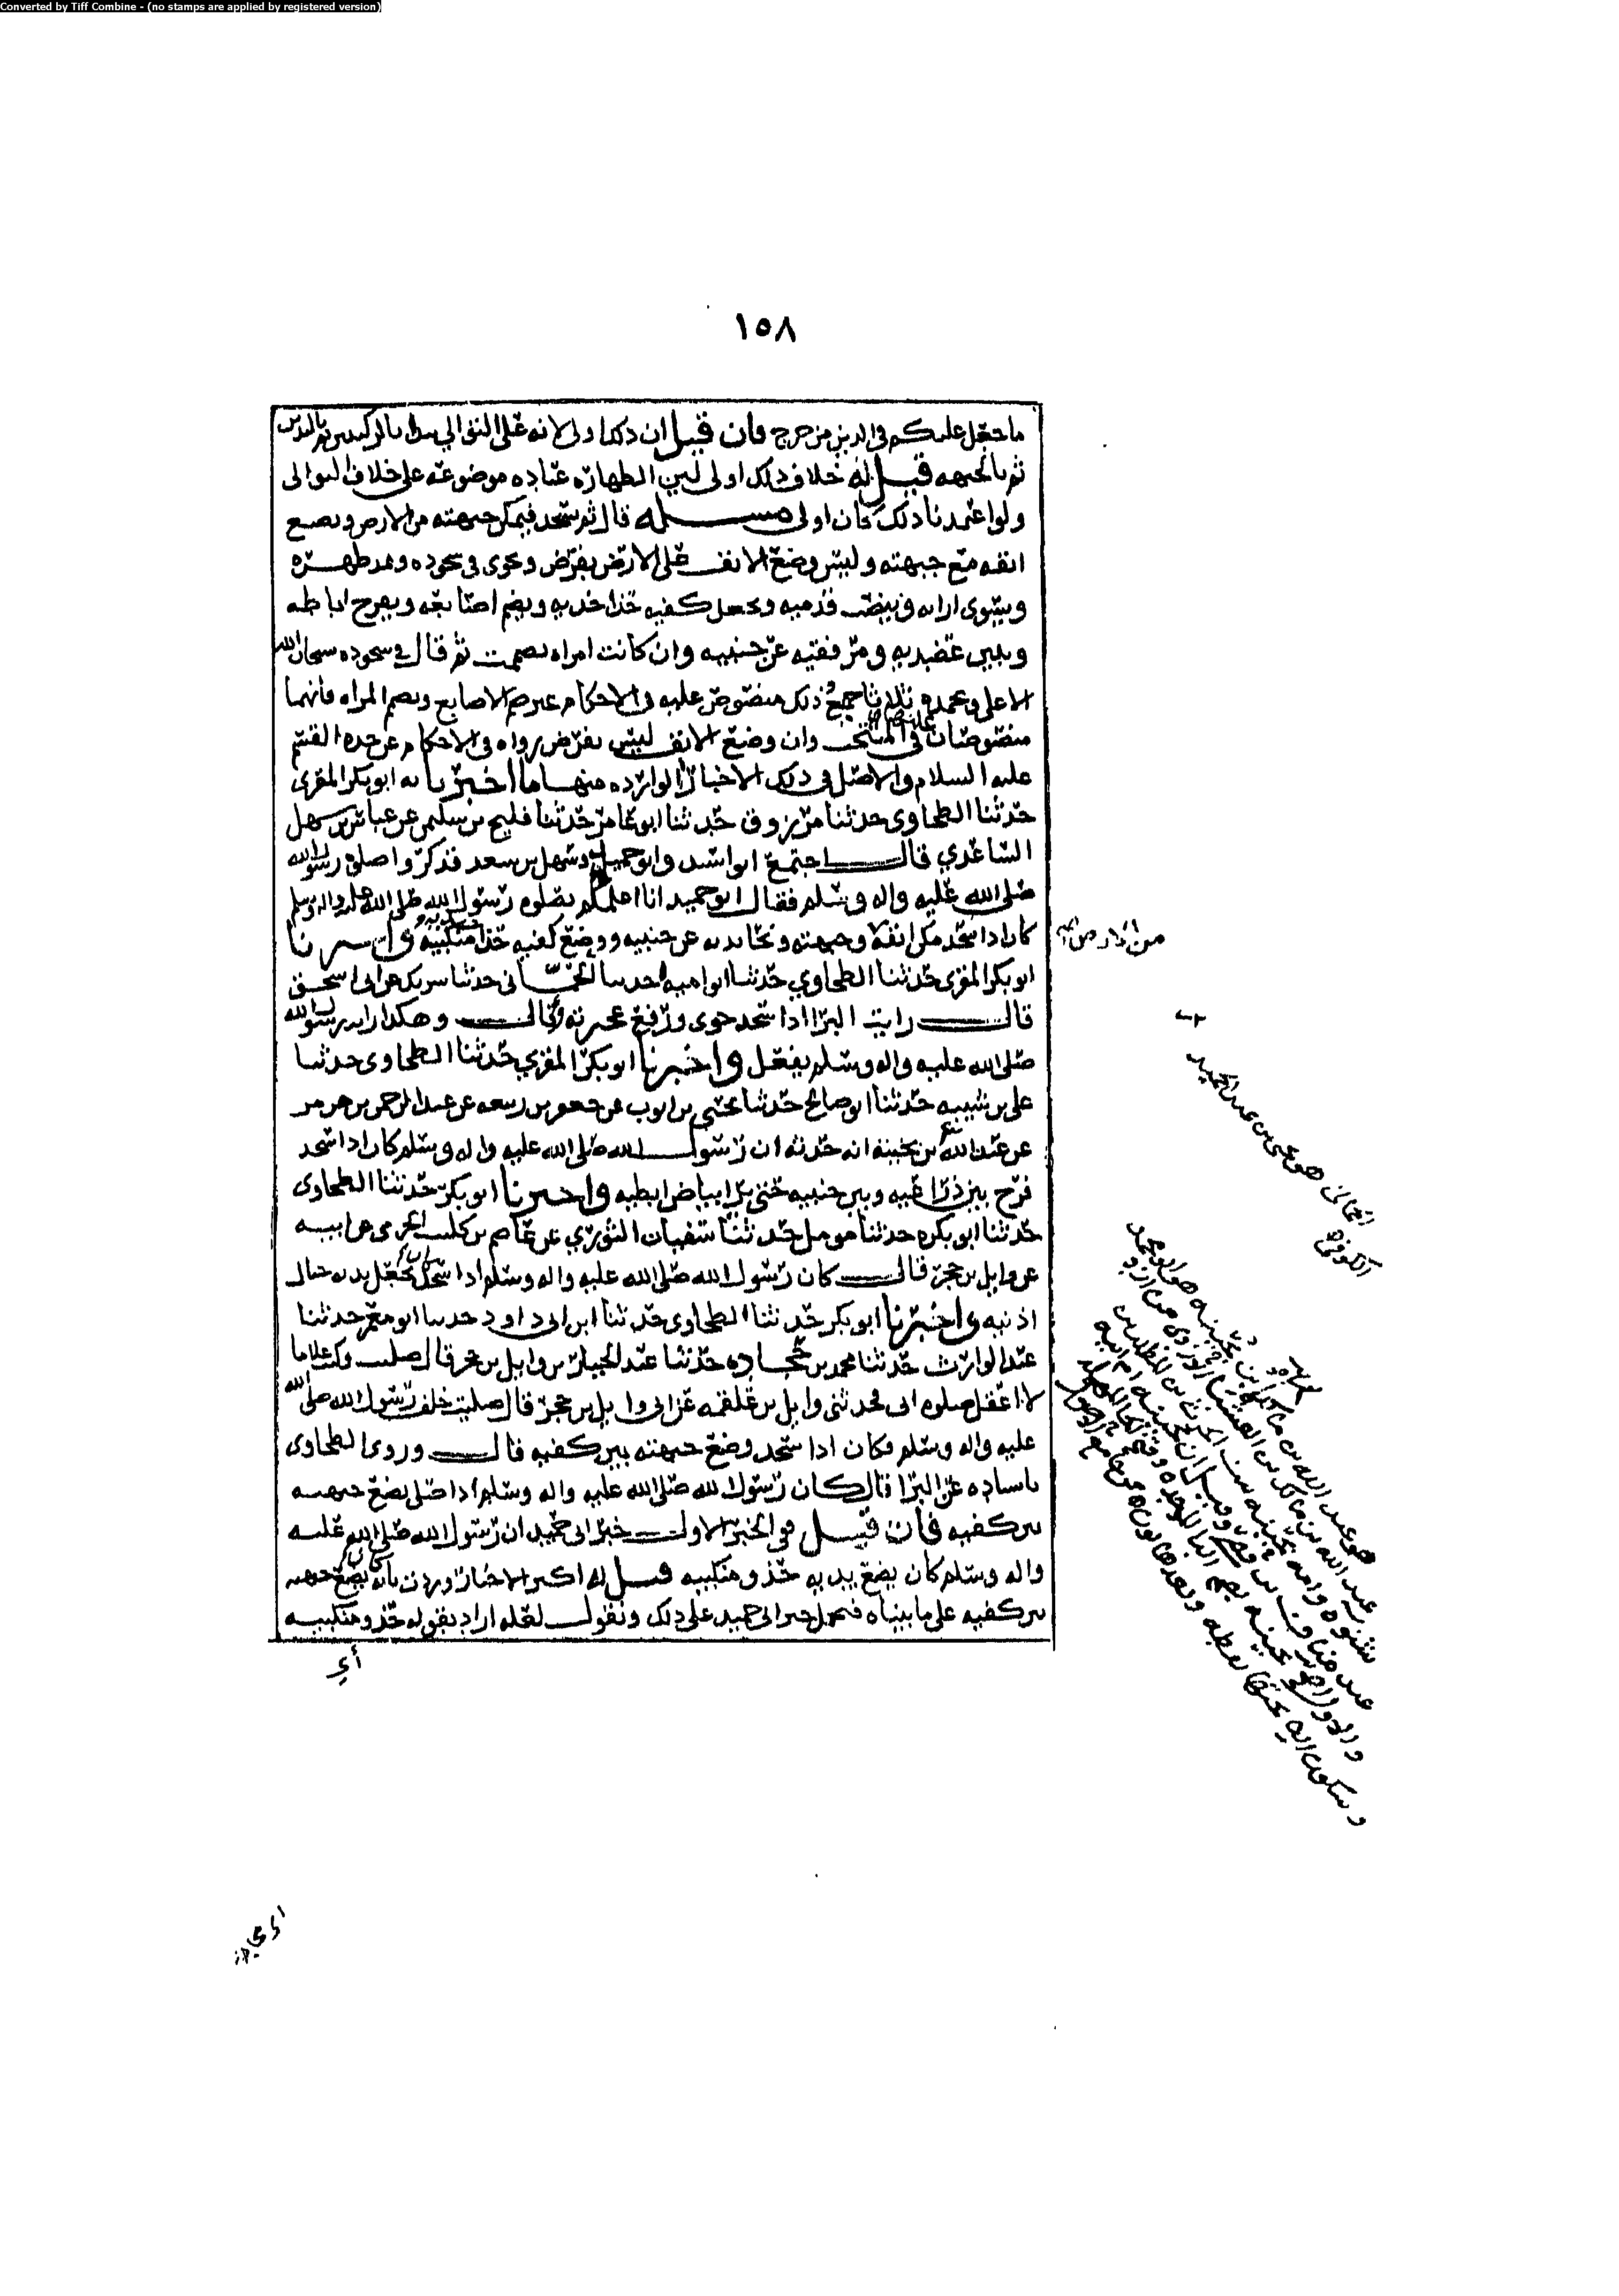 Converted by Tiff Combine - (no stamps are applied by registered version)
١٥٨
ما جعل عليكم في الدين من حرج فان قيل ان ذلك اولى لانه على التوالي يبدا بالركبتين ثم باليدين
ثم بالجبهه قيل له خلاف ذلك اولى لان الطهاره عباده موضوعه على خلاف التوالي
ولو اعتمدنا ذلك كان اولى مسئله قال ثم يسجد فيمكن جبهته من الارض ويضع
انفه مع جبهته وليس وضع الانف على الارض بفرض ويخوى في سجوده ويمد ظهره
ويسوي ارابه وينصب قدميه ويجعل كفيه حذا خديه ويضم اصابعه ويفرج اباطه
ويبين عضديه ومرفقيه عن جنبيه وان كانت امراه تضممت ثم قال في سجوده سبحان الله
الاعلى وبحمده ثلاثا جميع ذلك منصوص عليه في الاحكام غير ضم الاصابع وتضم المراه فانهما
منصوصان عليهما في المنتخب وان وضع الانف ليس بفرض رواه في الاحكام عن جده القسم
عليه السلام والاصل في ذلك الاخبار الوارده منها ما اخبرنا به ابو بكر المقرى
حدثنا الطحاوى حدثنا مرزوق حدثنا ابو عامر حدثنا فليح بن سليمن عن عباس بن سهل
الساعدي قال اجتمع ابو اسيد وابو حميد وسهل بن سعد فذكروا صلوة رسول الله
صلى الله عليه واله وسلم فقال ابو حميد انا اعلمكم بصلوه رسول الله صلى الله عليه واله وسلم
كان اذا سجد مكن انفه وجبهته ونحا يديه عن جنبيه ووضع كفيه حذا منكبيه واخبرنا
ابو بكر المقرى حدثنا الطحاوي حدثنا ابو اميه حدثنا الحماني حدثنا شريك عن ابى اسحق
قال رايت البرا اذا سجد خوى ورفع عجيزته وقال وهكذا رايت رسول الله
صلى الله عليه واله وسلم يفعل واخبرنا ابو بكر المقري حدثنا الطحاوى حدثنا
على بن شيبه حدثنا ابو صالح حدثنا يحيى بن ايوب عن جعفر بن ربيعه عن عبد الرحمن بن هرمز
عن عبد الله بن بحينه انه حدثه ان رسول الله صلى الله عليه واله وسلم كان اذا سجد
فرج بين ذراعيه وبين جنبيه حتى يرا بياض ابطيه واخبرنا ابو بكر حدثنا الطحاوى
حدثنا ابو بكره حدثنا مومل حدثنا سفيان الثوري عن عاصم بن كليب الجرمي عن ابيه
عن وايل بن حجر قال كان رسول الله صلى الله عليه واله وسلم اذا سجد يجعل يديه حيال
اذنيه واخبرنا ابو بكر حدثنا الطحاوى حدثنا ابن ابى داود حدثنا ابو معمر حدثنا
عبد الوارث حدثنا محمد بن جحاده حدثنا عبد الجبار بن وايل بن حجر قال صليت وكنت غلاما
لا اعقل صلوه ابى فحدثنى وايل بن علقمه عن ابى وايل بن حجر قال صليت خلف رسول الله صلى الله
عليه واله وسلم فكان اذا سجد وضع جبهته بين كفيه قال وروى الطحاوى
باسناده عن البرا قال كان رسول الله صلى الله عليه واله وسلم اذا صلى يضع جبهته
بين كفيه فان قيل في الخبر الاول خبر ابى حميد ان رسول الله صلى الله عليه
واله وسلم كان يضع يديه حذو منكبيه قيل له اكثر الاخبار وردت بانه كان يضع جبهته
بين كفيه على ما بيناه فنحمل خبر ابى حميد على ذلك ونقول لعله اراد بقوله حذو منكبيه
أي
الحماني هو يحيى بن عبد الحميد
الكوفي
هو عبد الله بن مالك ابن بحينه هو ابو محمد